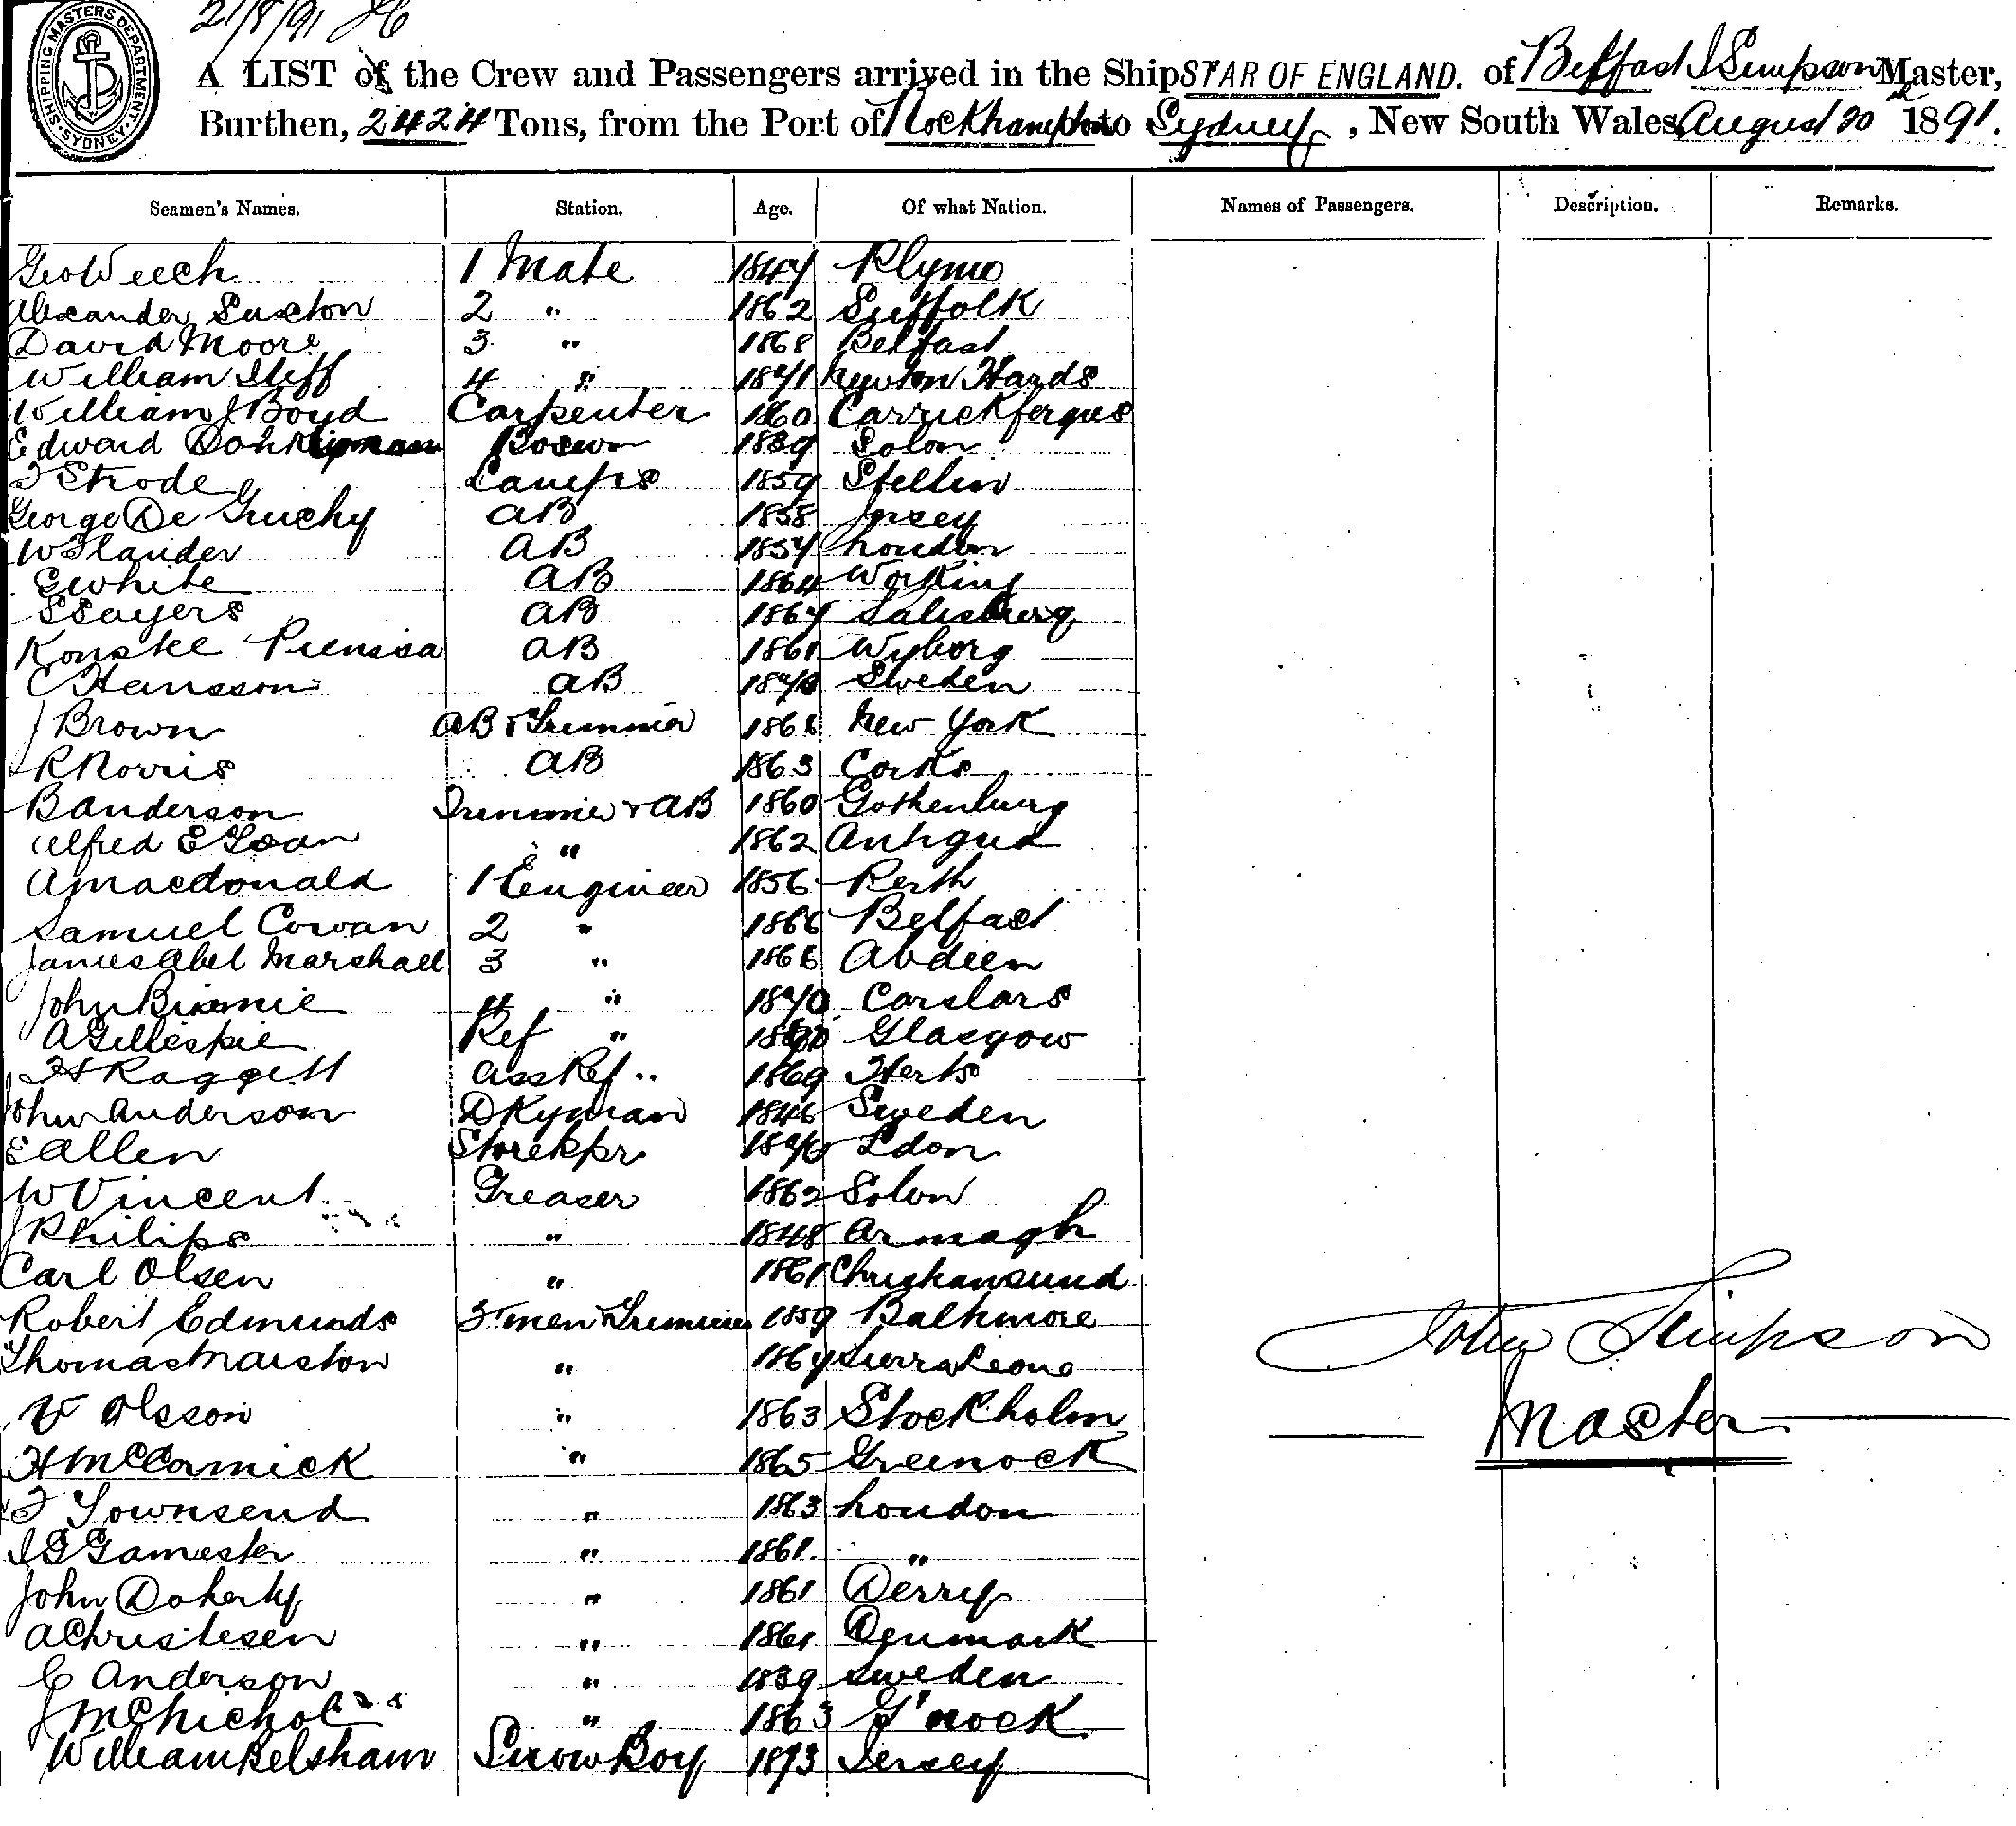 21/8/91
SHIPPING MASTERS DEPARTMENT. SYDNEY.
A LIST of the Crew and Passengers arrived in the Ship STAR OF ENGLAND. of Belfast J Simpson Master,
Burthen, 2424 Tons, from the Port of Rockhampton to Sydney, New South Wales August 20 1891.
Seamen's Names. Station. Age. Of what Nation. Names of Passengers. Description. Remarks.
Geo Veech 1 Mate 1847 Plymo
Alexander Suxton 2 " 1862 Suffolk
David Moore 3 " 1868 Belfast
William Iliff 4 " 1871 Newton Hards
William J Boyd Carpenter 1860 Carrickfergus
Edward Boswn 1839 Solon
F Strode Lamps 1859 Stellin
George De Gruchy AB 1858 Jersey
W Flander AB 1857 London
G White AB 1864 Working
S Sayers AB 1867 Salisburg
Konstee AB 1861 Wyborg
C Hansson AB Sweden
J Brown AB & Trimmer 1868 New York
R Norris AB 1863 Corks
B Anderson Trimmer & AB 1860 Gothenburg
Alfred E Loan " 1862 Antigua
A Macdonald 1 Engineer 1856 Perth
Samuel Cowan 2 " 1866 Belfast
James Abel Marshall 3 " 1868 Abdeen
John Binnie 4 " 1870 Carslars
A Gillespie Ref " Glasgow
H Raggett Ass Ref " 1869 Herts
John Anderson DKyman 1846 Sweden
E Allen Storekpr Ldon
W Vincent Greaser 1862 Solon
J Philips " 1848 Armagh
Carl Olsen " 1861 Christiansund
Robert Edmunds F men & Trimmers 1859 Baltimore
Thomas Marston " 1867 Sierra Leone
V Olsson " 1863 Stockholm
H McCormick " 1865 Greenock
F Townsend " 1863 London
J G Gamester " 1861 "
John Doherty " 1861 Derry
A Christesen " 1861 Denmark
C Anderson " 1839 Sweden
J McNichol " 1863 G'nock
William Belsham Boy 1873 Jersey
John Simpson
Master